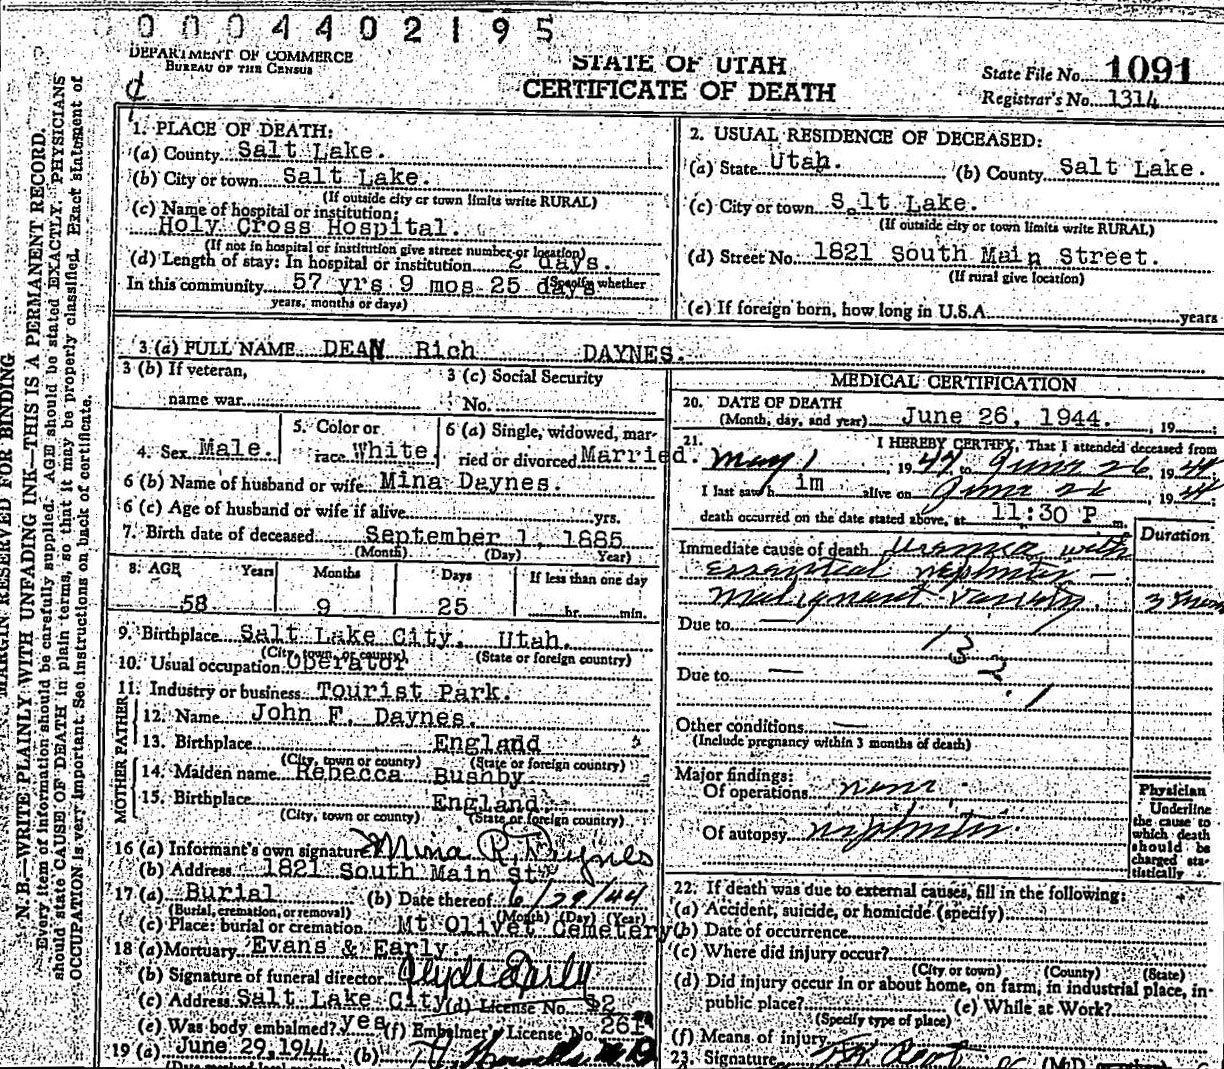 0004402195
DEPARTMENT OF COMMERCE
BUREAU OF THE CENSUS
STATE OF UTAH
CERTIFICATE OF DEATH
State File No. 1091
Registrar's No. 1314
MARGIN RESERVED FOR BINDING
N. B.—WRITE PLAINLY WITH UNFADING INK—THIS IS A PERMANENT RECORD.
Every item of information should be carefully supplied. AGE should be stated EXACTLY. PHYSICIANS
should state CAUSE OF DEATH in plain terms, so that it may be properly classified. Exact statement of
OCCUPATION is very important. See instructions on back of certificate.
1. PLACE OF DEATH:
(a) County Salt Lake.
(b) City or town Salt Lake.
(If outside city or town limits write RURAL)
(c) Name of hospital or institution:
Holy Cross Hospital.
(If not in hospital or institution give street number or location)
(d) Length of stay: In hospital or institution 2 days.
In this community 57 yrs 9 mos 25 days (Specify whether
years, months or days)
2. USUAL RESIDENCE OF DECEASED:
(a) State Utah. (b) County Salt Lake.
(c) City or town Salt Lake.
(If outside city or town limits write RURAL)
(d) Street No. 1821 South Main Street.
(If rural give location)
(e) If foreign born, how long in U.S.A. years
3 (a) FULL NAME DEAN Rich DAYNES.
3 (b) If veteran,
name war
3 (c) Social Security
No.
4. Sex Male.
5. Color or
race White.
6 (a) Single, widowed, mar-
ried or divorced Married.
6 (b) Name of husband or wife Mina Daynes.
6 (c) Age of husband or wife if alive yrs.
7. Birth date of deceased September 1, 1885
(Month) (Day) Year)
8. AGE Years Months Days If less than one day
58 9 25 hr. min.
9. Birthplace Salt Lake City, Utah.
(City, town, or county) (State or foreign country)
10. Usual occupation Operator
11. Industry or business Tourist Park.
FATHER
12. Name John F. Daynes.
13. Birthplace England
(City, town or county) (State or foreign country)
MOTHER
14. Maiden name Rebecca Bushby
15. Birthplace England.
(City, town or county) (State or foreign country)
16 (a) Informant's own signature Mina R. Daynes
(b) Address 1821 South Main st
17 (a) Burial (b) Date thereof 6/29/44
(Burial, cremation, or removal) (Month) (Day) (Year)
(c) Place: burial or cremation Mt Olivet Cemetery
18 (a) Mortuary Evans & Early.
(b) Signature of funeral director Clyde Early
(c) Address Salt Lake City (d) License No. 92
(e) Was body embalmed? yes (f) Embalmer's License No. 261
19 (a) June 29, 1944 (b) M D
MEDICAL CERTIFICATION
20. DATE OF DEATH
(Month, day, and year) June 26, 1944. , 19
21. I HEREBY CERTIFY, That I attended deceased from
May 1, 1944 to June 26, 1944
I last saw him alive on June 26, 1944
death occurred on the date stated above, at 11:30 P m.
Duration
Immediate cause of death Uremia with
essential nephritis —
Malignant variety. 3
Due to —
132.1
Due to —
Other conditions —
(Include pregnancy within 3 months of death)
Major findings:
Of operations none
Of autopsy nephritis.
Physician
Underline
the cause to
which death
should be
charged sta-
tistically
22. If death was due to external causes, fill in the following:
(a) Accident, suicide, or homicide (specify)
(b) Date of occurrence
(c) Where did injury occur?
(City or town) (County) (State)
(d) Did injury occur in or about home, on farm, in industrial place, in
public place? (e) While at Work?
(Specify type of place)
(f) Means of injury
23. Signature (M.D.